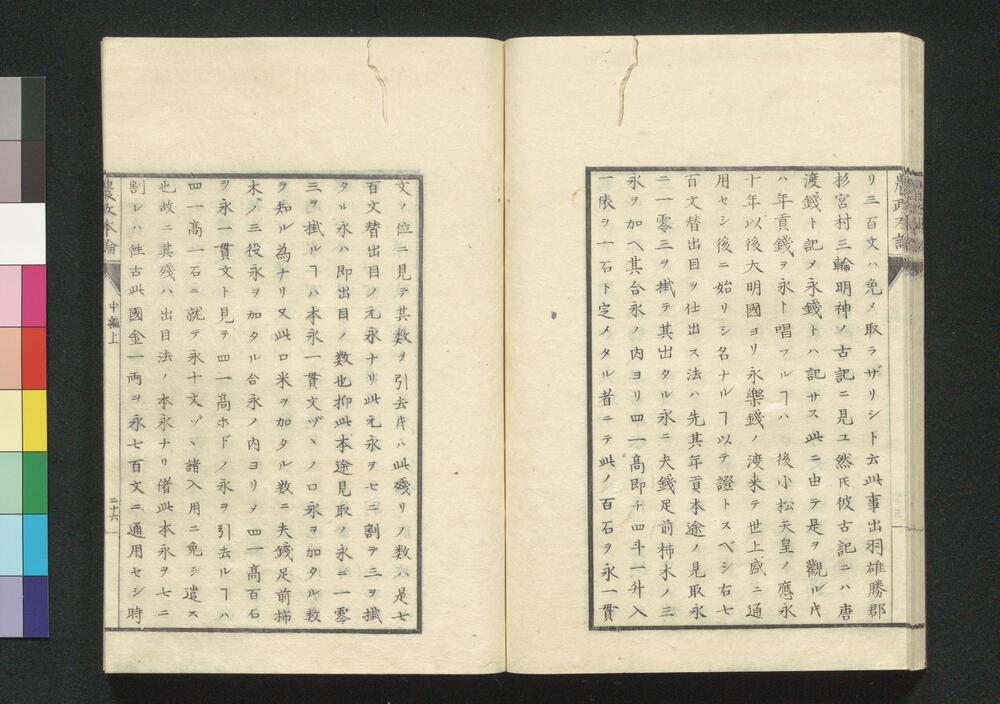 リ三百文ハ免メ取ラザリシト云此事出羽雄勝郡
杉宮村三輪明神ノ古記ニ見ユ然𪜈彼古記ニハ唐
渡錢ト記メ永錢トハ記サス此ニ由テ是ヲ觀ル𪜈
ハ年貢錢ヲ永ト唱フルヿハ後小松天皇ノ應永
十年以後大明國ヨリ永樂錢ノ渡来テ世上盛ニ通
用セシ後ニ始リシ名ナルヿ以テ證トスベシ右七
百文替出目ヲ仕出ス法ハ先其年貢本途ノ見取永
ニ一零三ヲ掛テ其出タル永ニ夫錢足前柿木ノ三
永ヲ加ヘ其合永ノ内ヨリ四一高即チ四斗一升入
一俵ヲ一石ト定メタル者ニテ此ノ百石ヲ永一貫
文ノ位ニ見テ其数ヲ引去𪜈ハ此殘リノ数ハ是七
百文替出目ノ元永ナリ此元永ヲ七ニ割テ三ヲ掛
タル永ハ即出目ノ数也抑此本途見取ノ永ニ一零
三ヲ掛ルヿハ本永一貫文ヅヽノ口永ヲ加タル数
ヲ知ル為ナリ又此口米ヲ加タル数ニ夫錢足前柿
木ノ三役永ヲ加タル合永ノ内ヨリメ四一高百石
ヲ永一貫文ト見テ四一高ホドノ永ヲ引去ルヿハ
四一高一石ニ就テ永十文ヅヽ諸入用ニ免シ遣ス
也故ニ其殘ハ出目法ノ本永ナリ偖此本永ヲ七ニ
割レハ徃古此國金一両ヲ永七百文ニ通用セシ時
農政本論
中編上
二十六